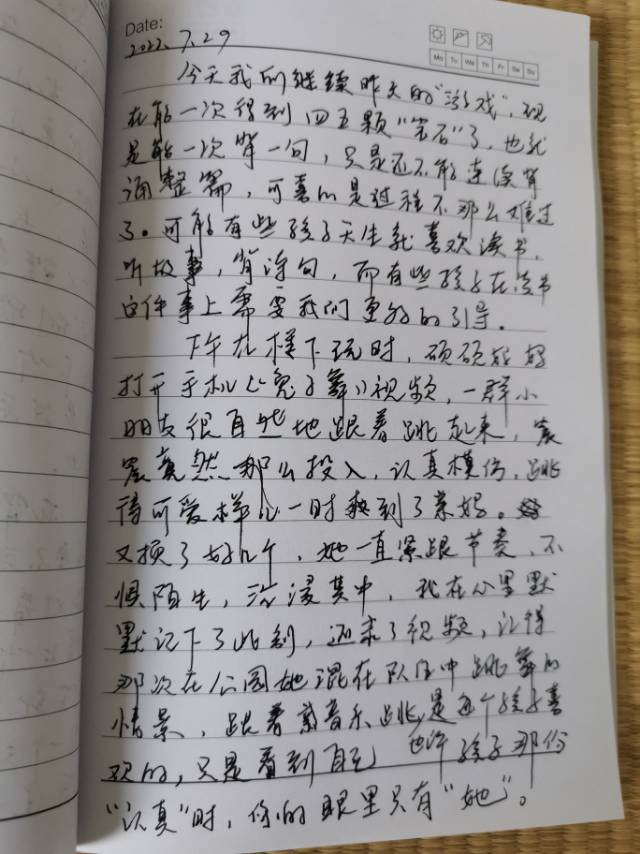 Date:
2022.7.29
Mo Tu We Th Fr Sa Su
今天我们继续昨天的"游戏",现
在能一次得到四五颗"宝石"了,也就
是能一次背一句,只是还不能连续背
诵整篇,可喜的是过程不那么难过
了。可能有些孩子天生就喜欢读书,
听故事,背诗句,而有些孩子在读书
这件事上需要我们更多的引导。
下午在楼下玩时,硕硕妈妈
打开手机《兔子舞》视频,一群小
朋友很自然地跟着跳起来,宸
宸竟然那么投入,认真模仿,跳
得可爱样儿一时熱到了亲妈。
又换了好几个,她一直紧跟节奏,不
惧陌生,沉浸其中,我在心里默
默记下了此刻,还录了视频,记得
那次在公园她混在队伍中跳舞的
情景,跟着音乐跳,是每个孩子喜
欢的,只是看到自己孩子那份
"认真"时,你的眼里只有"她"。